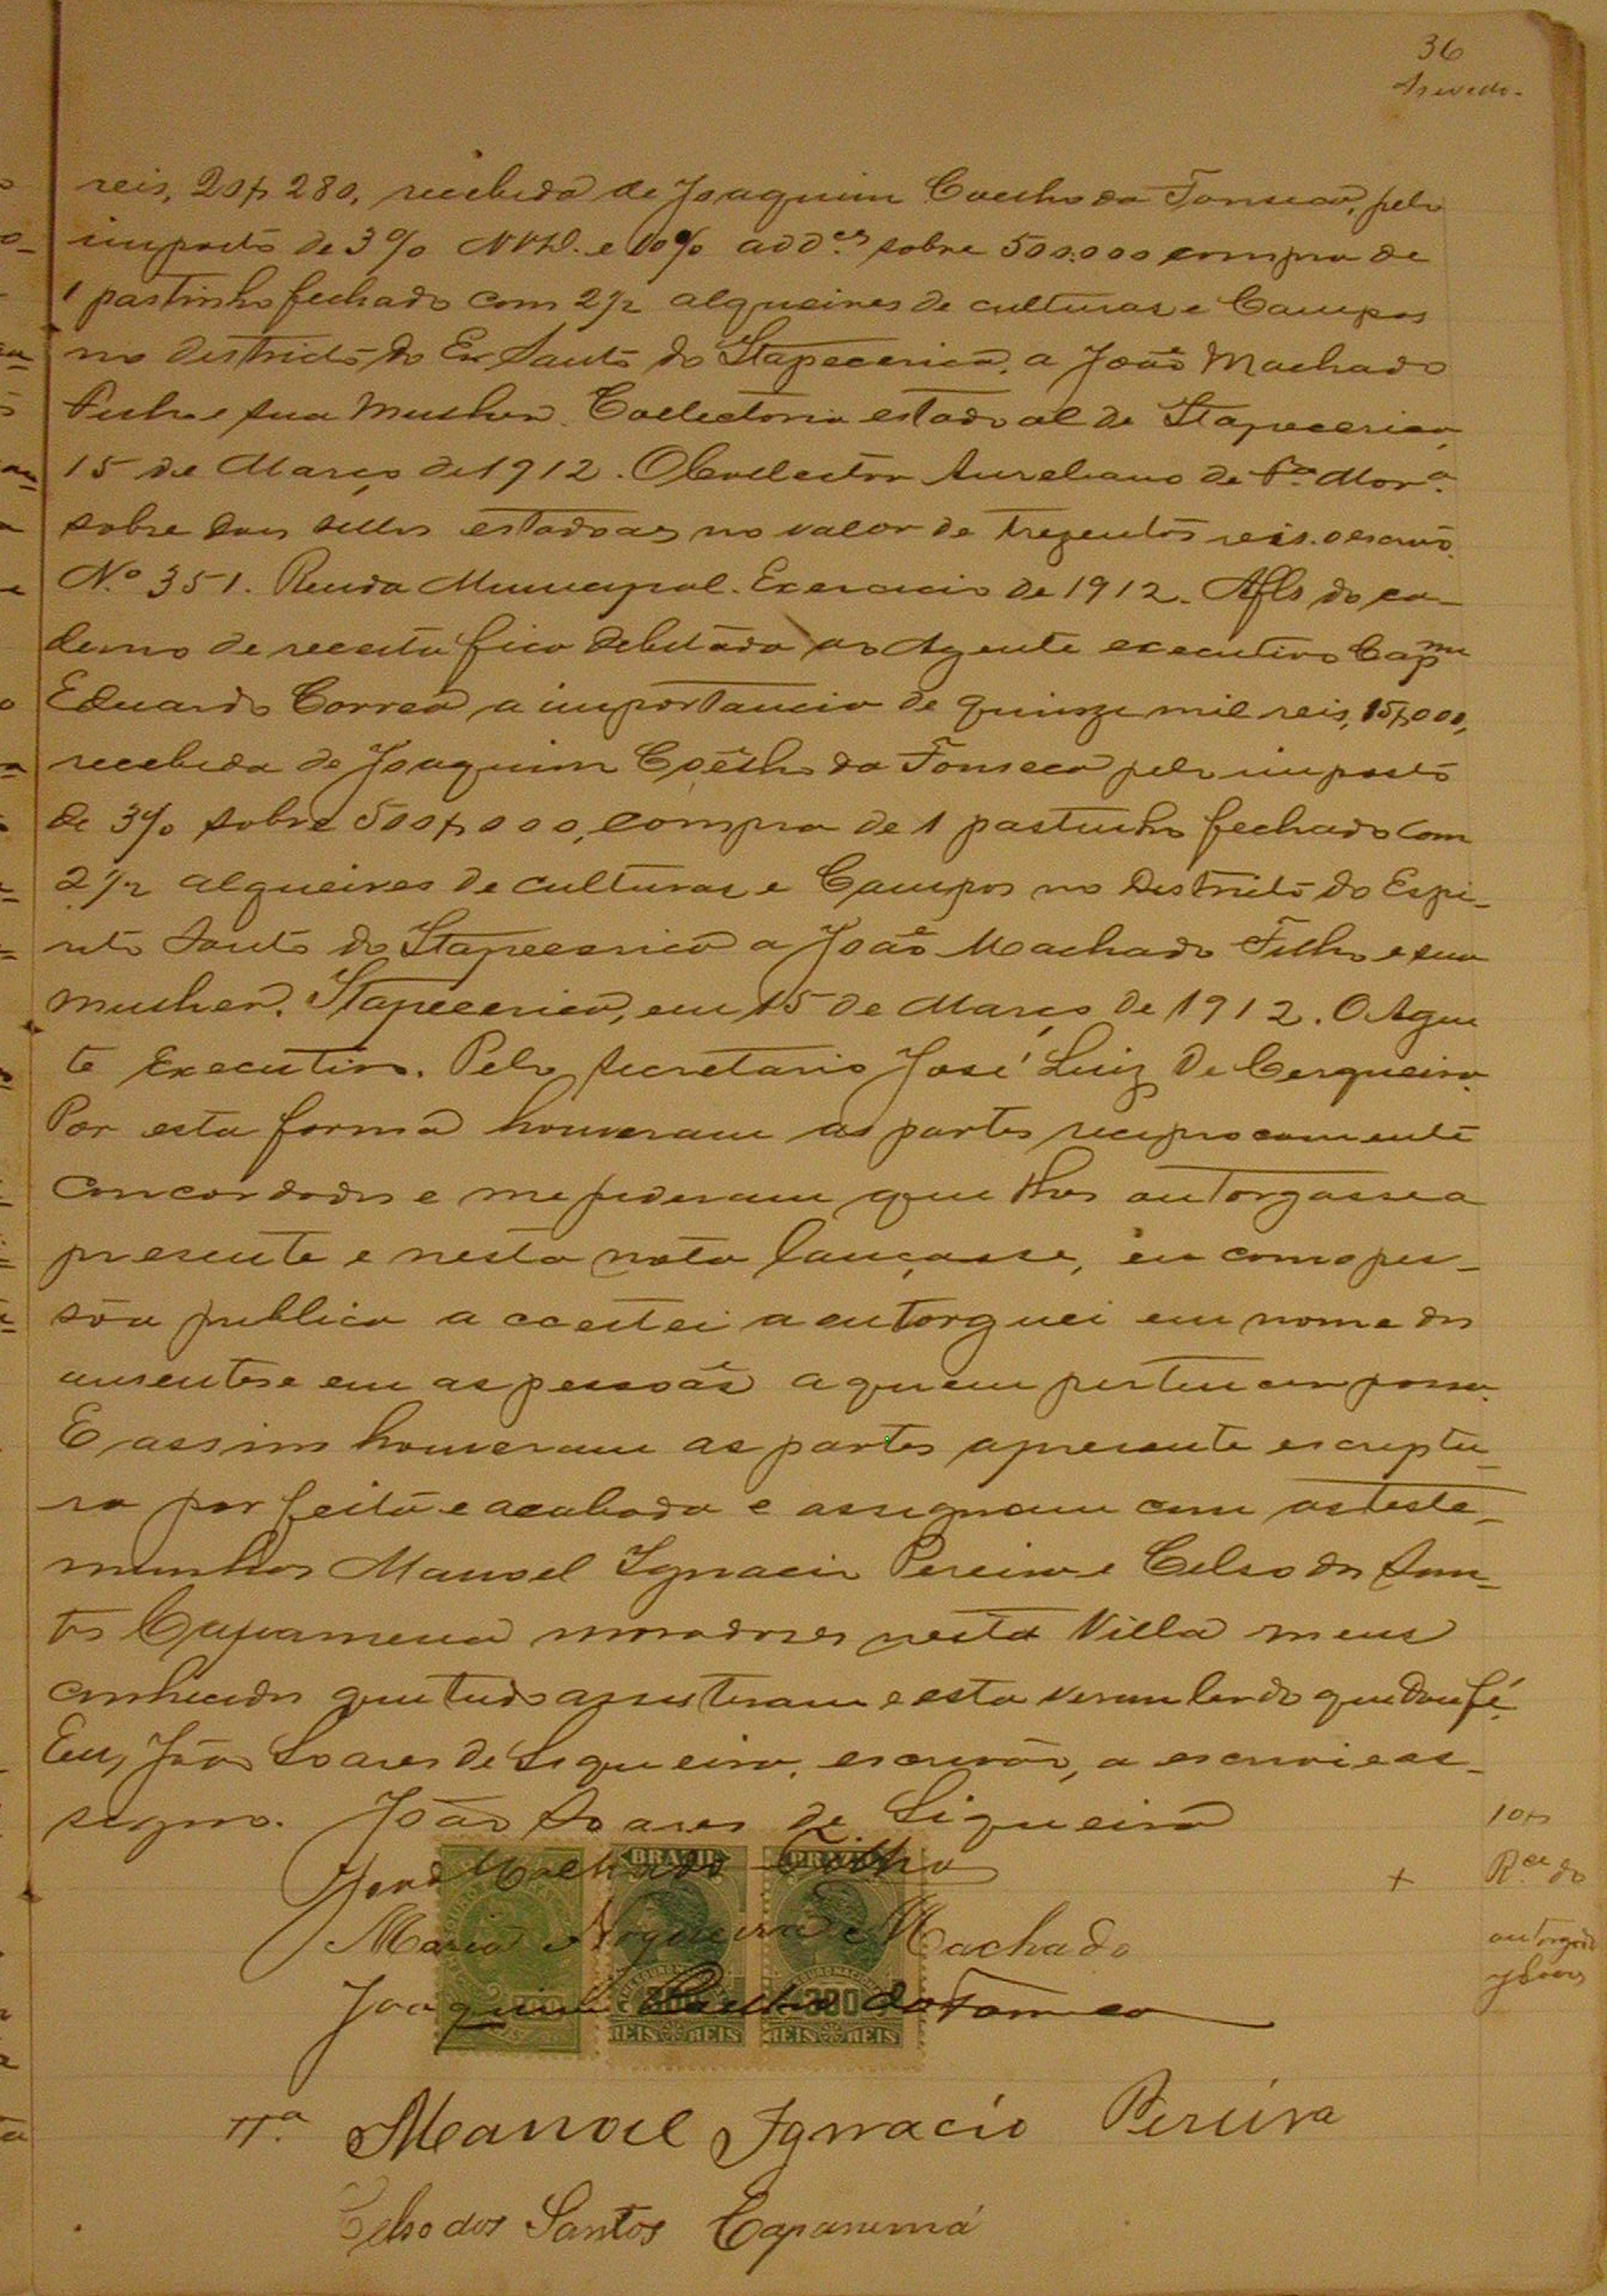 36
Azevedo.
reis, 20$280, recebida de Joaquim Coelho da Fonseca, pelo
imposto de 3% e 10% add.es sobre 500.000 compra de
1 pastinho fechado com 2 1/2 alqueires de culturas e Campos
no districto do Esp Santo do Itapecerica, a João Machado
Filho e sua mulher. Collectoria estadoal de Itapecerica,
15 de Março de 1912. O Collector Aureliano de Mor.a
sobre dous sellos estadoaes no valor de trezentos reis.
N.º 351. Renda Municipal. Exercicio de 1912. Afls do ca-
derno de receita fica debitado ao Agente executivo Cap.m
Eduardo Correa a importancia de quinze mil reis, 15$000,
recebida de Joaquim Coelho da Fonseca pelo imposto
de 3% sobre 500$000, compra de 1 pastinho fechado com
2 1/2 alqueires de culturas e Campos no Districto do Espi-
rito Santo do Itapecerica a João Machado Filho e sua
mulher. Itapecerica, em 15 de Março de 1912. O Agen
te Executivo. Pelo Secretario José Luiz de Cerqueira.
Por esta forma houveram as partes reciprocamente
concordados e me pediram que lhes outorgasse a
presente e nesta nota lançasse, eu como pes-
sôa publica a acceitei a outorguei em nome dos
ausentes e em as pessoas a quem pertencer possa.
E assim houveram as partes apresente escriptu-
ra por feita e acabada e assignam com as teste-
munhas Manoel Ignacio Pereira e Celso dos San-
tos Capanema moradores nesta Villa meus
conhecidos que tudo assistiram e esta viram ler do que dou fé.
Eu, João Soares de Siqueira, escrivão, a escrevi e as-
signo. João Soares de Siqueira
João Machado Filho
Maria Nogueira Machado
Joaquim Coelho da Fonseca
BRAZIL
BRAZIL
300
REIS REIS
REIS REIS
Manoel Ignacio Pereira
Celso dos Santos Capanema
10$
+